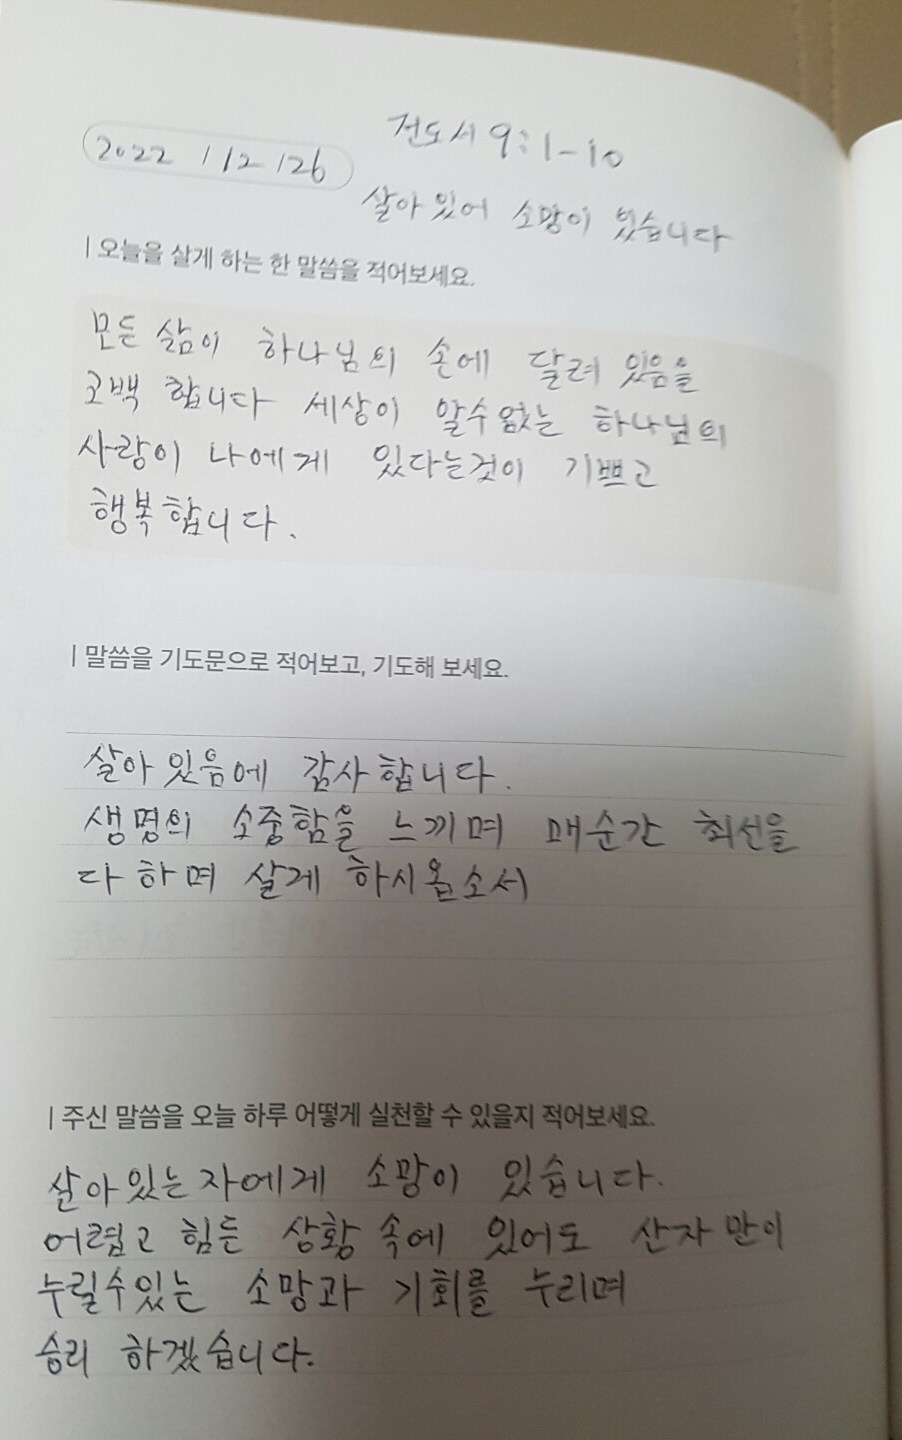 2022 / 12 / 26
전도서 9:1-10
살아있어 소망이 있습니다
| 오늘을 살게 하는 한 말씀을 적어보세요.
모든 삶이 하나님의 손에 달려 있음을
고백 합니다 세상이 알수없는 하나님의
사랑이 나에게 있다는것이 기쁘고
행복합니다.
| 말씀을 기도문으로 적어보고, 기도해 보세요.
살아있음에 감사합니다.
생명의 소중함을 느끼며 매순간 최선을
다하며 살게 하시옵소서
| 주신 말씀을 오늘 하루 어떻게 실천할 수 있을지 적어보세요.
살아있는자에게 소망이 있습니다.
어렵고 힘든 상황속에 있어도 산자만이
누릴수있는 소망과 기회를 누리며
승리 하겠습니다.